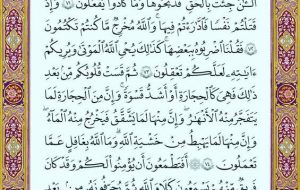 ٱلْـَٰٔنَ جِئْتَ بِٱلْحَقِّ فَذَبَحُوهَا وَمَا كَادُوا۟ يَفْعَلُونَ ۝٧١ وَإِذْ
قَتَلْتُمْ نَفْسًا فَٱدَّٰرَْٰٔتُمْ فِيهَا وَٱللَّهُ مُخْرِجٌ مَّا كُنتُمْ تَكْتُمُونَ
۝٧٢ فَقُلْنَا ٱضْرِبُوهُ بِبَعْضِهَا كَذَٰلِكَ يُحْىِ ٱللَّهُ ٱلْمَوْتَىٰ وَيُرِيكُمْ
ءَايَٰتِهِۦ لَعَلَّكُمْ تَعْقِلُونَ ۝٧٣ ثُمَّ قَسَتْ قُلُوبُكُم مِّنۢ بَعْدِ
ذَٰلِكَ فَهِىَ كَٱلْحِجَارَةِ أَوْ أَشَدُّ قَسْوَةً وَإِنَّ مِنَ ٱلْحِجَارَةِ لَمَا
يَتَفَجَّرُ مِنْهُ ٱلْأَنْهَٰرُ وَإِنَّ مِنْهَا لَمَا يَشَّقَّقُ فَيَخْرُجُ مِنْهُ ٱلْمَآءُ
وَإِنَّ مِنْهَا لَمَا يَهْبِطُ مِنْ خَشْيَةِ ٱللَّهِ وَمَا ٱللَّهُ بِغَٰفِلٍ عَمَّا
تَعْمَلُونَ ۝٧٤ أَفَتَطْمَعُونَ أَن يُؤْمِنُوا۟ لَكُمْ وَقَدْ كَانَ
فَرِيقٌ مِّنْهُمْ يَسْمَعُونَ كَلَٰمَ ٱللَّهِ ثُمَّ يُحَرِّفُونَهُۥ مِنۢ بَعْدِ